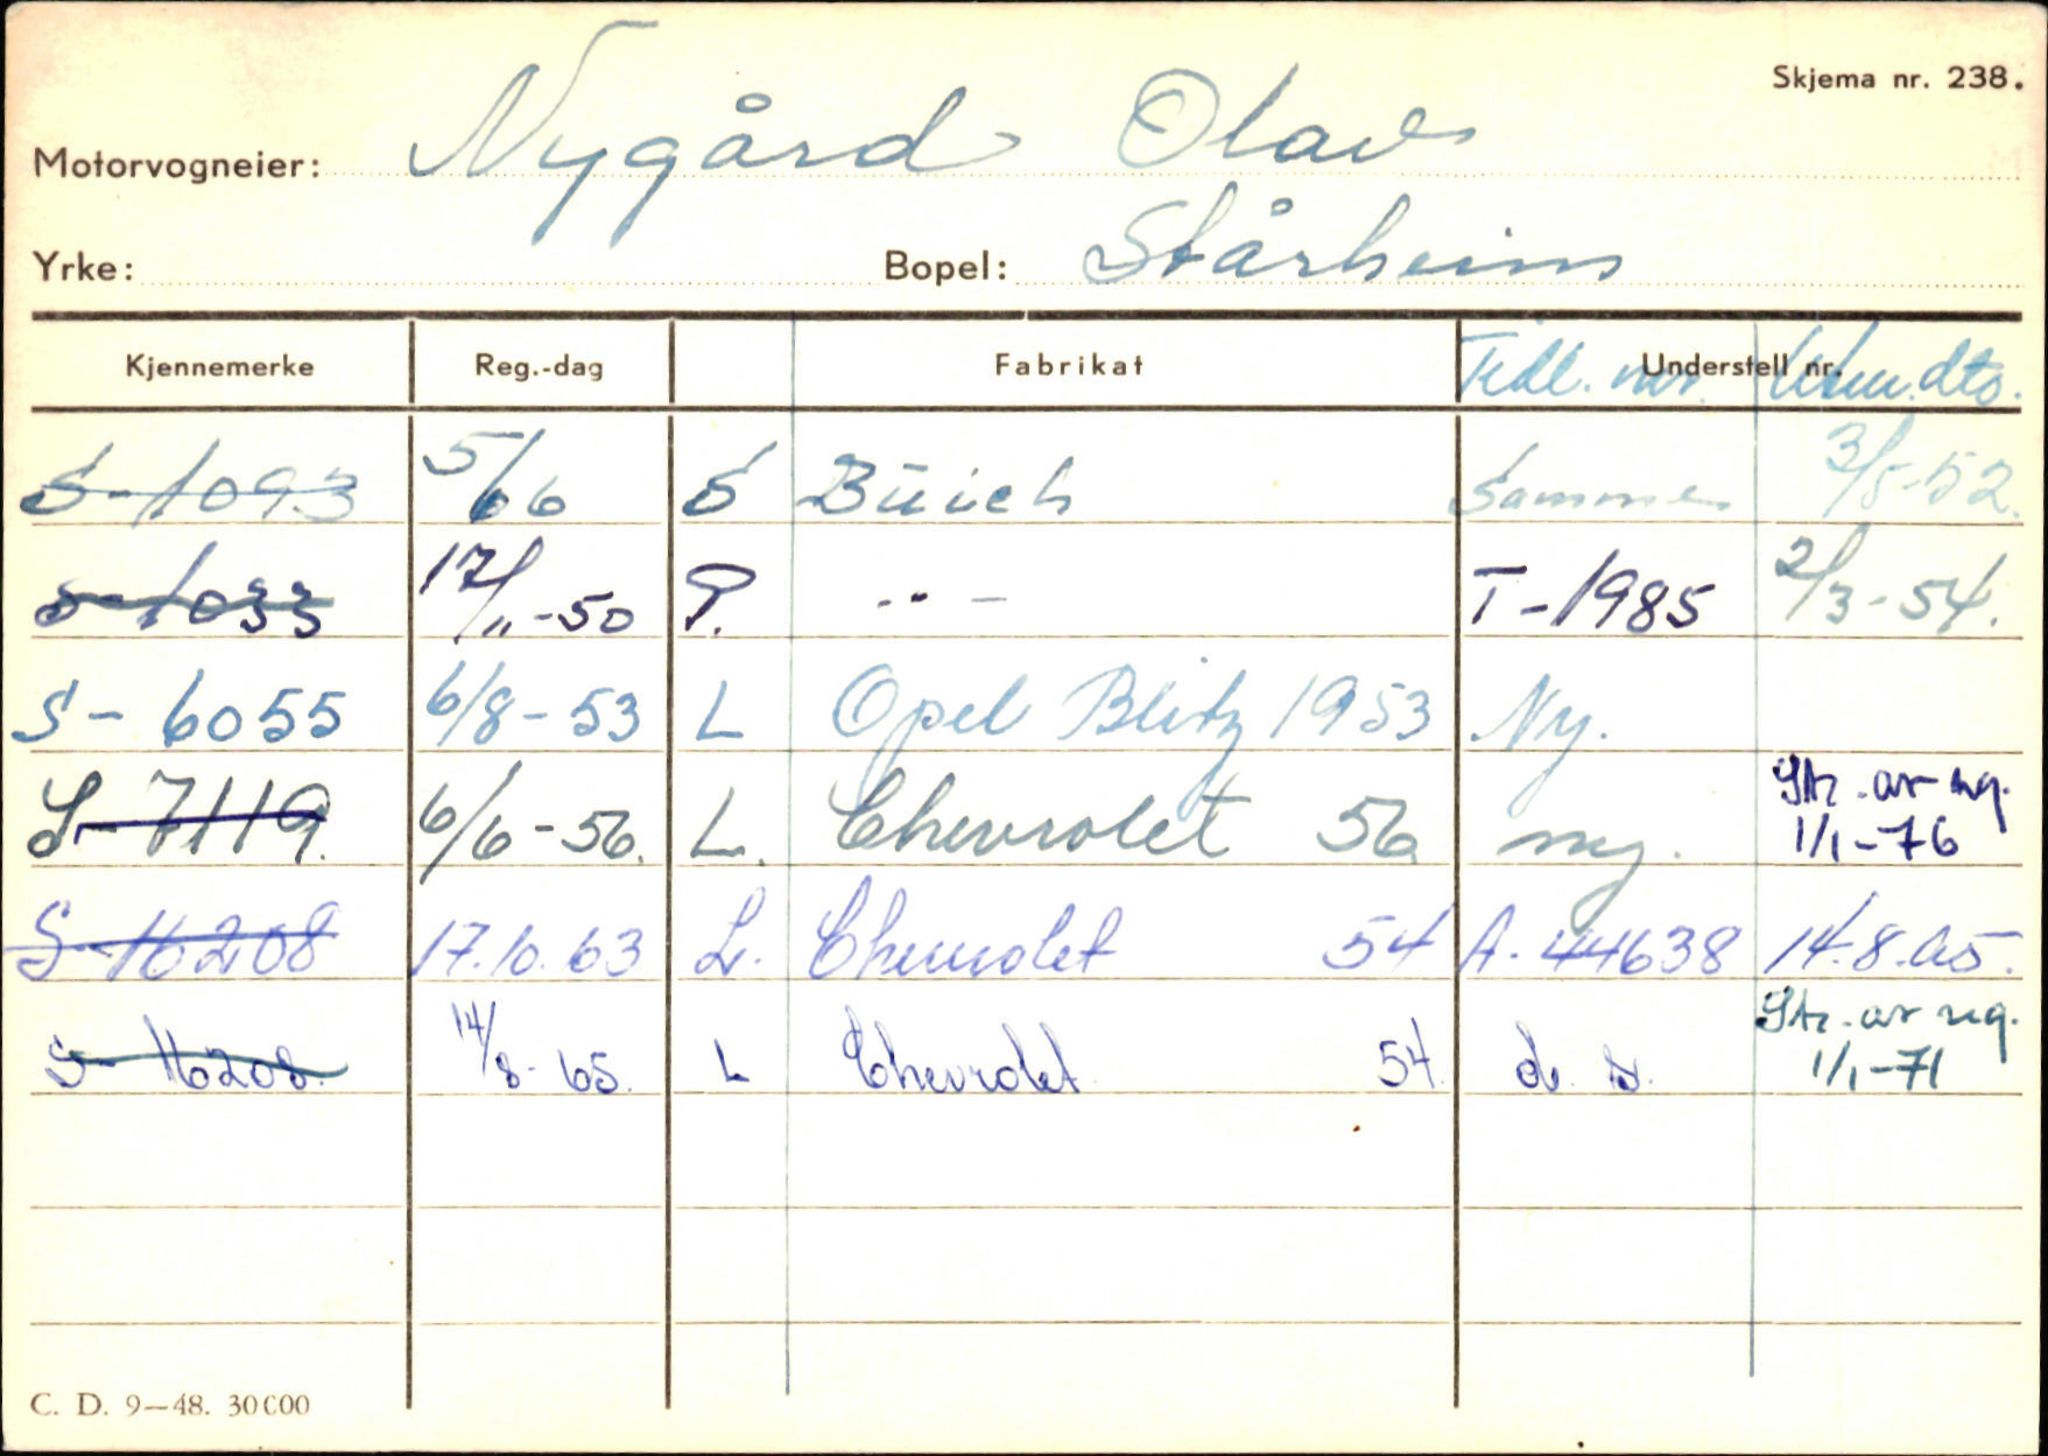 Skjema nr. 238.
Motorvogneier: Nygård Olav
Yrke: Bopel: Stårheim
Kjennemerke Reg.-dag Fabrikat Understell nr. Tidl. nr.
S-1093 5/6 S Buich Samme 3/5-52.
S-1033 17/11-50 P. - " - T-1985 2/3-54.
S-6055 6/8-53 L Opel Blitz 1953 Ny.
S-7119. 6/6-56. L. Chevrolet 56 ny. Str. av reg. 1/1-76
S-16208 17.10.63 L. Chevrolet 54 A.44638 14.8.65.
S-16208. 14/8-65. L Chevrolet 54. d. s. Str. av reg. 1/1-71
C. D. 9—48. 30000